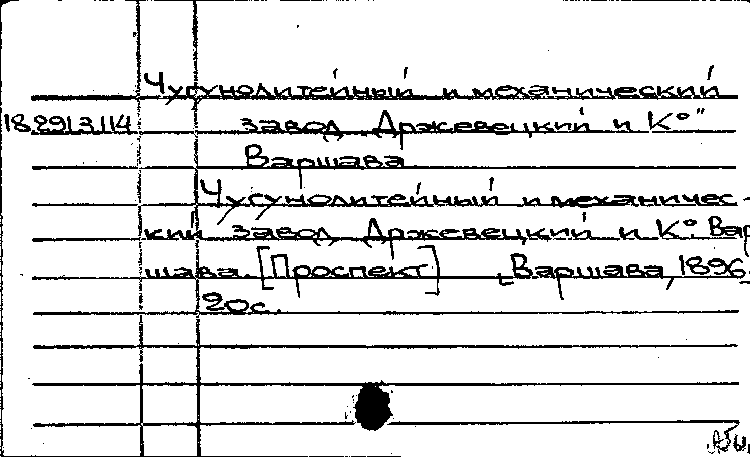 Чугунолитейный и механический
18.291.3.114 завод „Држевецкий и К°"
Варшава
Чугунолитейный и механичес-
кий завод Држевецкий и К°. Вар
шава. [Проспект] [Варшава, 1896.
20с.